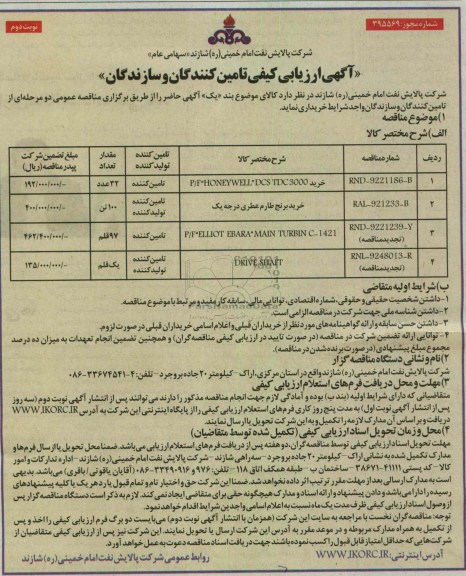 شماره مجوز: ۳۹۵۵۶۹
نوبت دوم
شرکت پالایش نفت امام خمینی(ره) شازند «سهامی عام»
«آگهی ارزیابی کیفی تامین کنندگان و سازندگان»
شرکت پالایش نفت امام خمینی(ره) شازند در نظر دارد کالای موضوع بند «یک» آگهی حاضر را از طریق برگزاری مناقصه عمومی دو مرحله‌ای از
تامین کنندگان و سازندگان واجد شرایط خریداری نماید.
۱) موضوع مناقصه
الف) شرح مختصر کالا
ردیف شماره مناقصه شرح مختصر کالا تامین کننده تولید کننده مقدار تعداد مبلغ تضمین شرکت در مناقصه (ریال)
۱ RND-9221186-B خرید P/F"HONEYWELL"DCS TDC3000 تامین کننده تولید کننده ۳۲ عدد ۱۹۲/۰۰۰/۰۰۰/-
۲ RAL-921233-B خرید برنج طارم عطری درجه یک تامین کننده تولید کننده ۱۰۰ تن ۴۰۰/۰۰۰/۰۰۰/-
۳ RND-9221239-Y (تجدید مناقصه) P/F"ELLIOT EBARA"MAIN TURBIN C-1421 تامین کننده ۹۷ قلم ۴۶۲/۴۰۰/۰۰۰/-
۴ RNL-9248013-R (تجدید مناقصه) DRIVE SHAFT تامین کننده تولید کننده یک قلم ۱۳۵/۰۰۰/۰۰۰/-
ب) شرایط اولیه متقاضی
۱- داشتن شخصیت حقیقی و حقوقی، شماره اقتصادی، توانایی مالی، سابقه کار مفید و مرتبط با موضوع مناقصه.
۲- داشتن شناسه ملی جهت شرکت در مناقصه الزامی است.
۳- داشتن حسن سابقه و ارائه گواهینامه های مورد نظر از خریداران قبلی و اعلام اسامی خریداران قبلی در صورت لزوم.
۴- توانایی ارائه تضمین شرکت در مناقصه (در صورت تایید در ارزیابی کیفی مناقصه گران) و همچنین تضمین انجام تعهدات به میزان ده درصد
مجموع مبلغ پیشنهادی (در صورت برنده شدن در مناقصه).
۲) نام و نشانی دستگاه مناقصه گزار
شرکت پالایش نفت امام خمینی (ره) شازند واقع در استان مرکزی، اراک - کیلومتر ۲۰ جاده بروجرد - تلفن: ۴-۳۳۶۷۴۵۴۱-۰۸۶
۳) مهلت و محل دریافت فرم های استعلام ارزیابی کیفی
متقاضیانی که دارای شرایط اولیه (بند ب) بوده و آمادگی لازم جهت انجام مناقصه مذکور را دارند می توانند پس از انتشار آگهی نوبت دوم (سه روز
پس از انتشار آگهی نوبت اول) به مدت پنج روز کاری فرم های استعلام ارزیابی کیفی را از پایگاه اینترنتی این شرکت به آدرس WWW.IKORC.IR
دریافت و بر اساس آن مدارک لازم را تکمیل و به این شرکت تحویل یا ارسال نمایند.
۴) محل و زمان تحویل اسناد ارزیابی کیفی (تکمیل شده توسط متقاضیان)
مهلت تحویل اسناد ارزیابی کیفی توسط مناقصه گران، دو هفته پس از دریافت فرم های استعلام ارزیابی می باشد. ضمنا محل تحویل یا ارسال فرم ها و
مدارک تکمیل شده به نشانی اراک - کیلومتر ۲۰ جاده بروجرد - سه راهی شازند - شرکت پالایش نفت امام خمینی(ره) شازند - اداره تدارکات و امور
کالا - کد پستی ۴۱۱۱۱-۳۸۶۷۱ - ساختمان ب - طبقه همکف اتاق ۱۱۸ - تلفن: ۹۷۶ و ۳۳۴۹۰۹۱۶-۰۸۶ (آقایان یاقوتی / باقری) می باشد. بدیهی
است به مدارک ارسالی بعد از مهلت مقرر ترتیب اثر داده نخواهد شد. ضمنا این شرکت حق و اختیار تام و تمام قبول یا رد هر یک یا کلیه پیشنهادهای
رسیده را دارا می باشد و دادن پیشنهاد و ارائه اسناد و مدارک هیچگونه حقی برای متقاضی ایجاد نمی کند. لازم به ذکر است دستگاه مناقصه گزار پس
از وصول اسناد ارزیابی کیفی ظرف مدت یک ماه نسبت به اعلام اسامی واجدین شرایط اقدام خواهد نمود.
توجه: مناقصه گران نخست با مراجعه به سایت این شرکت (همزمان با انتشار آگهی نوبت دوم) می بایست دو برگ فرم ارزیابی کیفی را اخذ و پس
از تکمیل به همراه مدارک مربوطه و در موعد مقرر به آدرس این شرکت ارسال یا تحویل نمایند. این شرکت نیز پس از ارزیابی کیفی متقاضیان از
شرکت هایی که حداقل امتیاز قابل قبول را کسب نموده باشند جهت دریافت اسناد مناقصه دعوت به عمل خواهد آورد.
آدرس اینترنتی: WWW.IKORC.IR
روابط عمومی شرکت پالایش نفت امام خمینی(ره) شازند